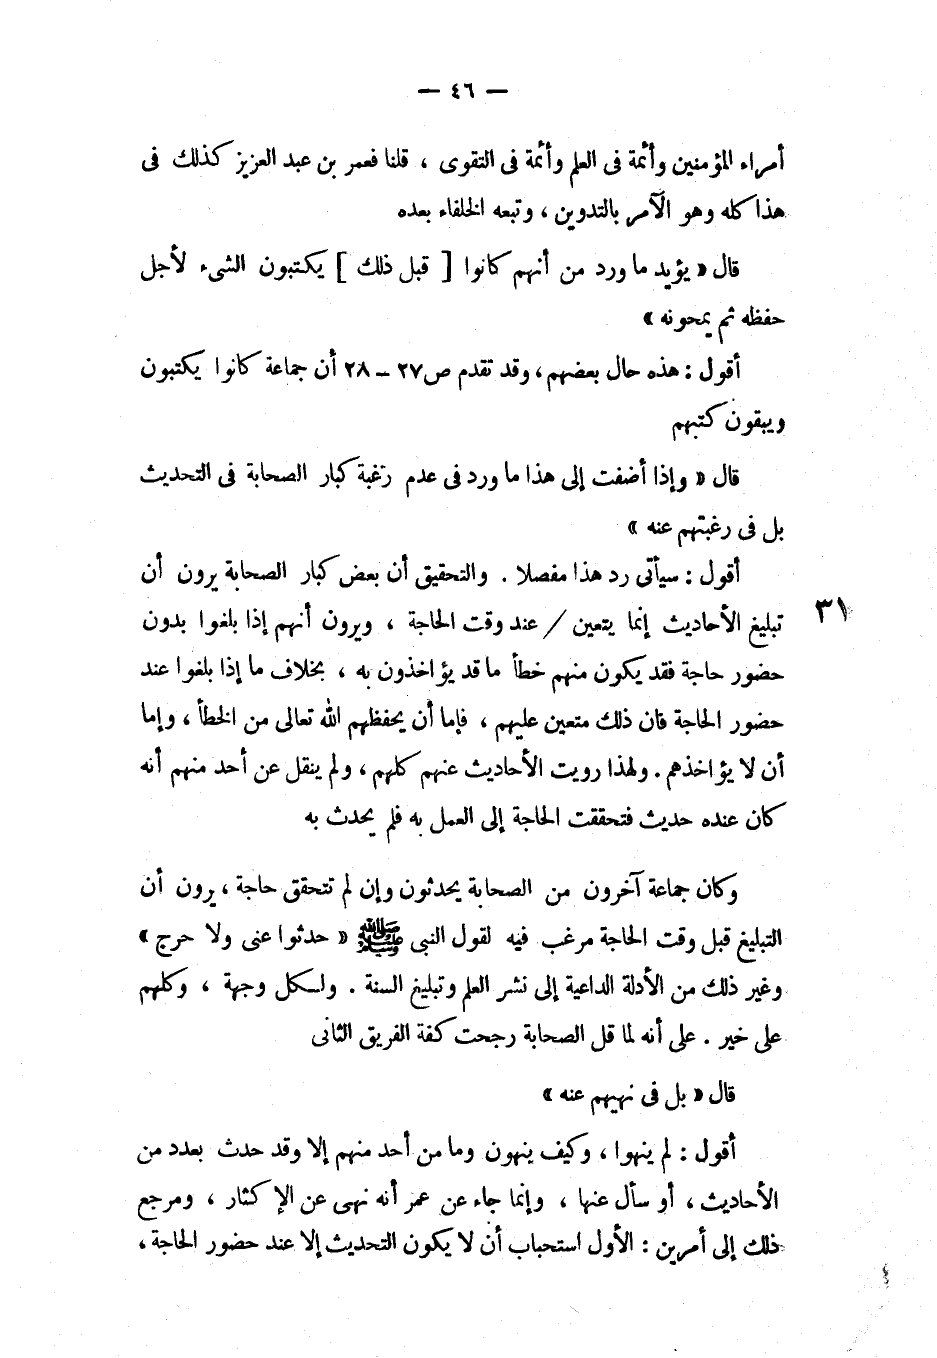 — ٤٦ —
أمراء المؤمنين وأئمة فى العلم وأئمة فى التقوى ، قلنا فعمر بن عبد العزيز كذلك فى
هذا كله وهو الآمر بالتدوين ، وتبعه الخلفاء بعده
قال « يؤيد ما ورد من أنهم كانوا [ قبل ذلك ] يكتبون الشىء لأجل
حفظه ثم يمحونه »
أقول : هذه حال بعضهم ، وقد تقدم ص٢٧ – ٢٨ أن جماعة كانوا يكتبون
ويبقون كتبهم
قال « وإذا أضفت إلى هذا ما ورد فى عدم رغبة كبار الصحابة فى التحديث
بل فى رغبتهم عنه »
أقول : سيأتى رد هذا مفصلا . والتحقيق أن بعض كبار الصحابة يرون أن
تبليغ الأحاديث إنما يتعين / عند وقت الحاجة ، ويرون أنهم إذا بلغوا بدون
٣١
حضور حاجة فقد يكون منهم خطأ ما قد يؤاخذون به ، بخلاف ما إذا بلغوا عند
حضور الحاجة فان ذلك متعين عليهم ، فإما أن يحفظهم الله تعالى من الخطأ ، وإما
أن لا يؤاخذهم . ولهذا رويت الأحاديث عنهم كلهم ، ولم ينقل عن أحد منهم أنه
كان عنده حديث فتحققت الحاجة إلى العمل به فلم يحدث به
وكان جماعة آخرون من الصحابة يحدثون وإن لم تتحقق حاجة ، يرون أن
التبليغ قبل وقت الحاجة مرغب فيه لقول النبى ﷺ « حدثوا عنى ولا حرج »
وغير ذلك من الأدلة الداعية إلى نشر العلم وتبليغ السنة . ولكل وجهة ، وكلهم
على خير . على أنه لما قل الصحابة رجحت كفة الفريق الثانى
قال « بل فى نهيهم عنه »
أقول : لم ينهوا ، وكيف ينهون وما من أحد منهم إلا وقد حدث بعدد من
الأحاديث ، أو سأل عنها ، وإنما جاء عن عمر أنه نهى عن الإكثار ، ومرجع
ذلك إلى أمرين : الأول استحباب أن لا يكون التحديث إلا عند حضور الحاجة ،